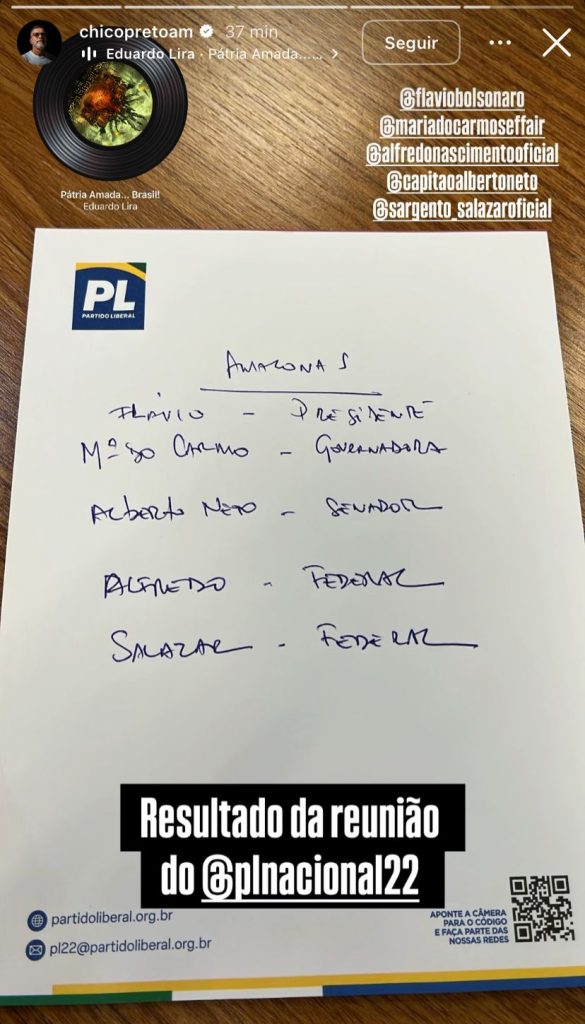 chicopretoam 37 min
Eduardo Lira · Pátria Amada...... >
Seguir
Pátria Amada... Brasil!
Eduardo Lira
@flaviobolsonaro
@mariadocarmoseffair
@alfredonascimentooficial
@capitaoalbertoneto
@sargento_salazaroficial
PL
PARTIDO LIBERAL
AMAZONAS
FLÁVIO - PRESIDENTE
Mª DO CARMO - GOVERNADORA
Alberto NETO - SENADOR
ALFREDO - FEDERAL
SALAZAR - FEDERAL
Resultado da reunião
do @plnacional22
partidoliberal.org.br
pl22@partidoliberal.org.br
APONTE A CÂMERA
PARA O CÓDIGO
E FAÇA PARTE DAS
NOSSAS REDES